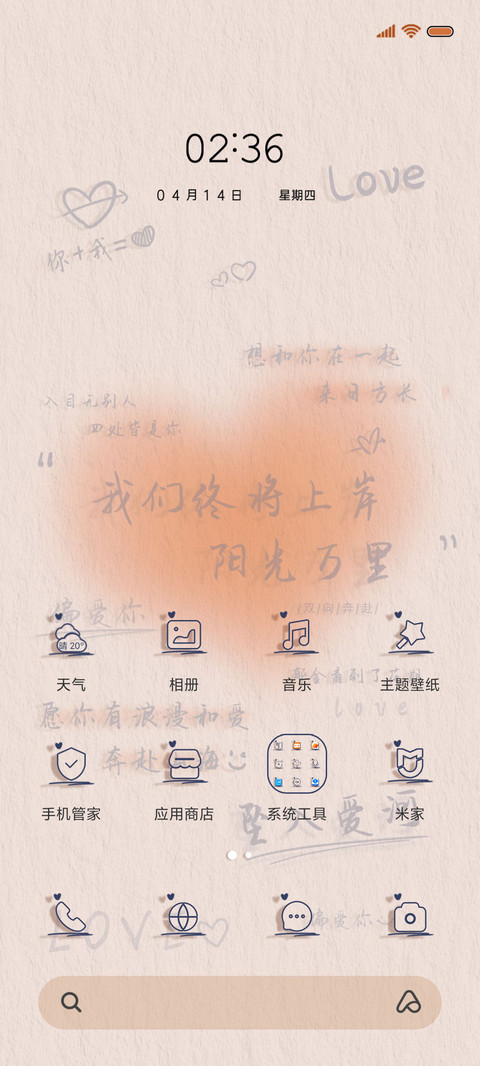 02:36
04月14日 星期四
Love
你+我=
想和你在一起
来日方长
入目无别人
四处皆是你
“我们终将上岸
阳光万里”
偏爱你
/双/向/奔/赴/
晴 20°
天气 相册 音乐 主题壁纸
love
愿你有浪漫和爱
奔赴山海
手机管家 应用商店 系统工具 米家
坠入爱河
偏爱你
LOVE